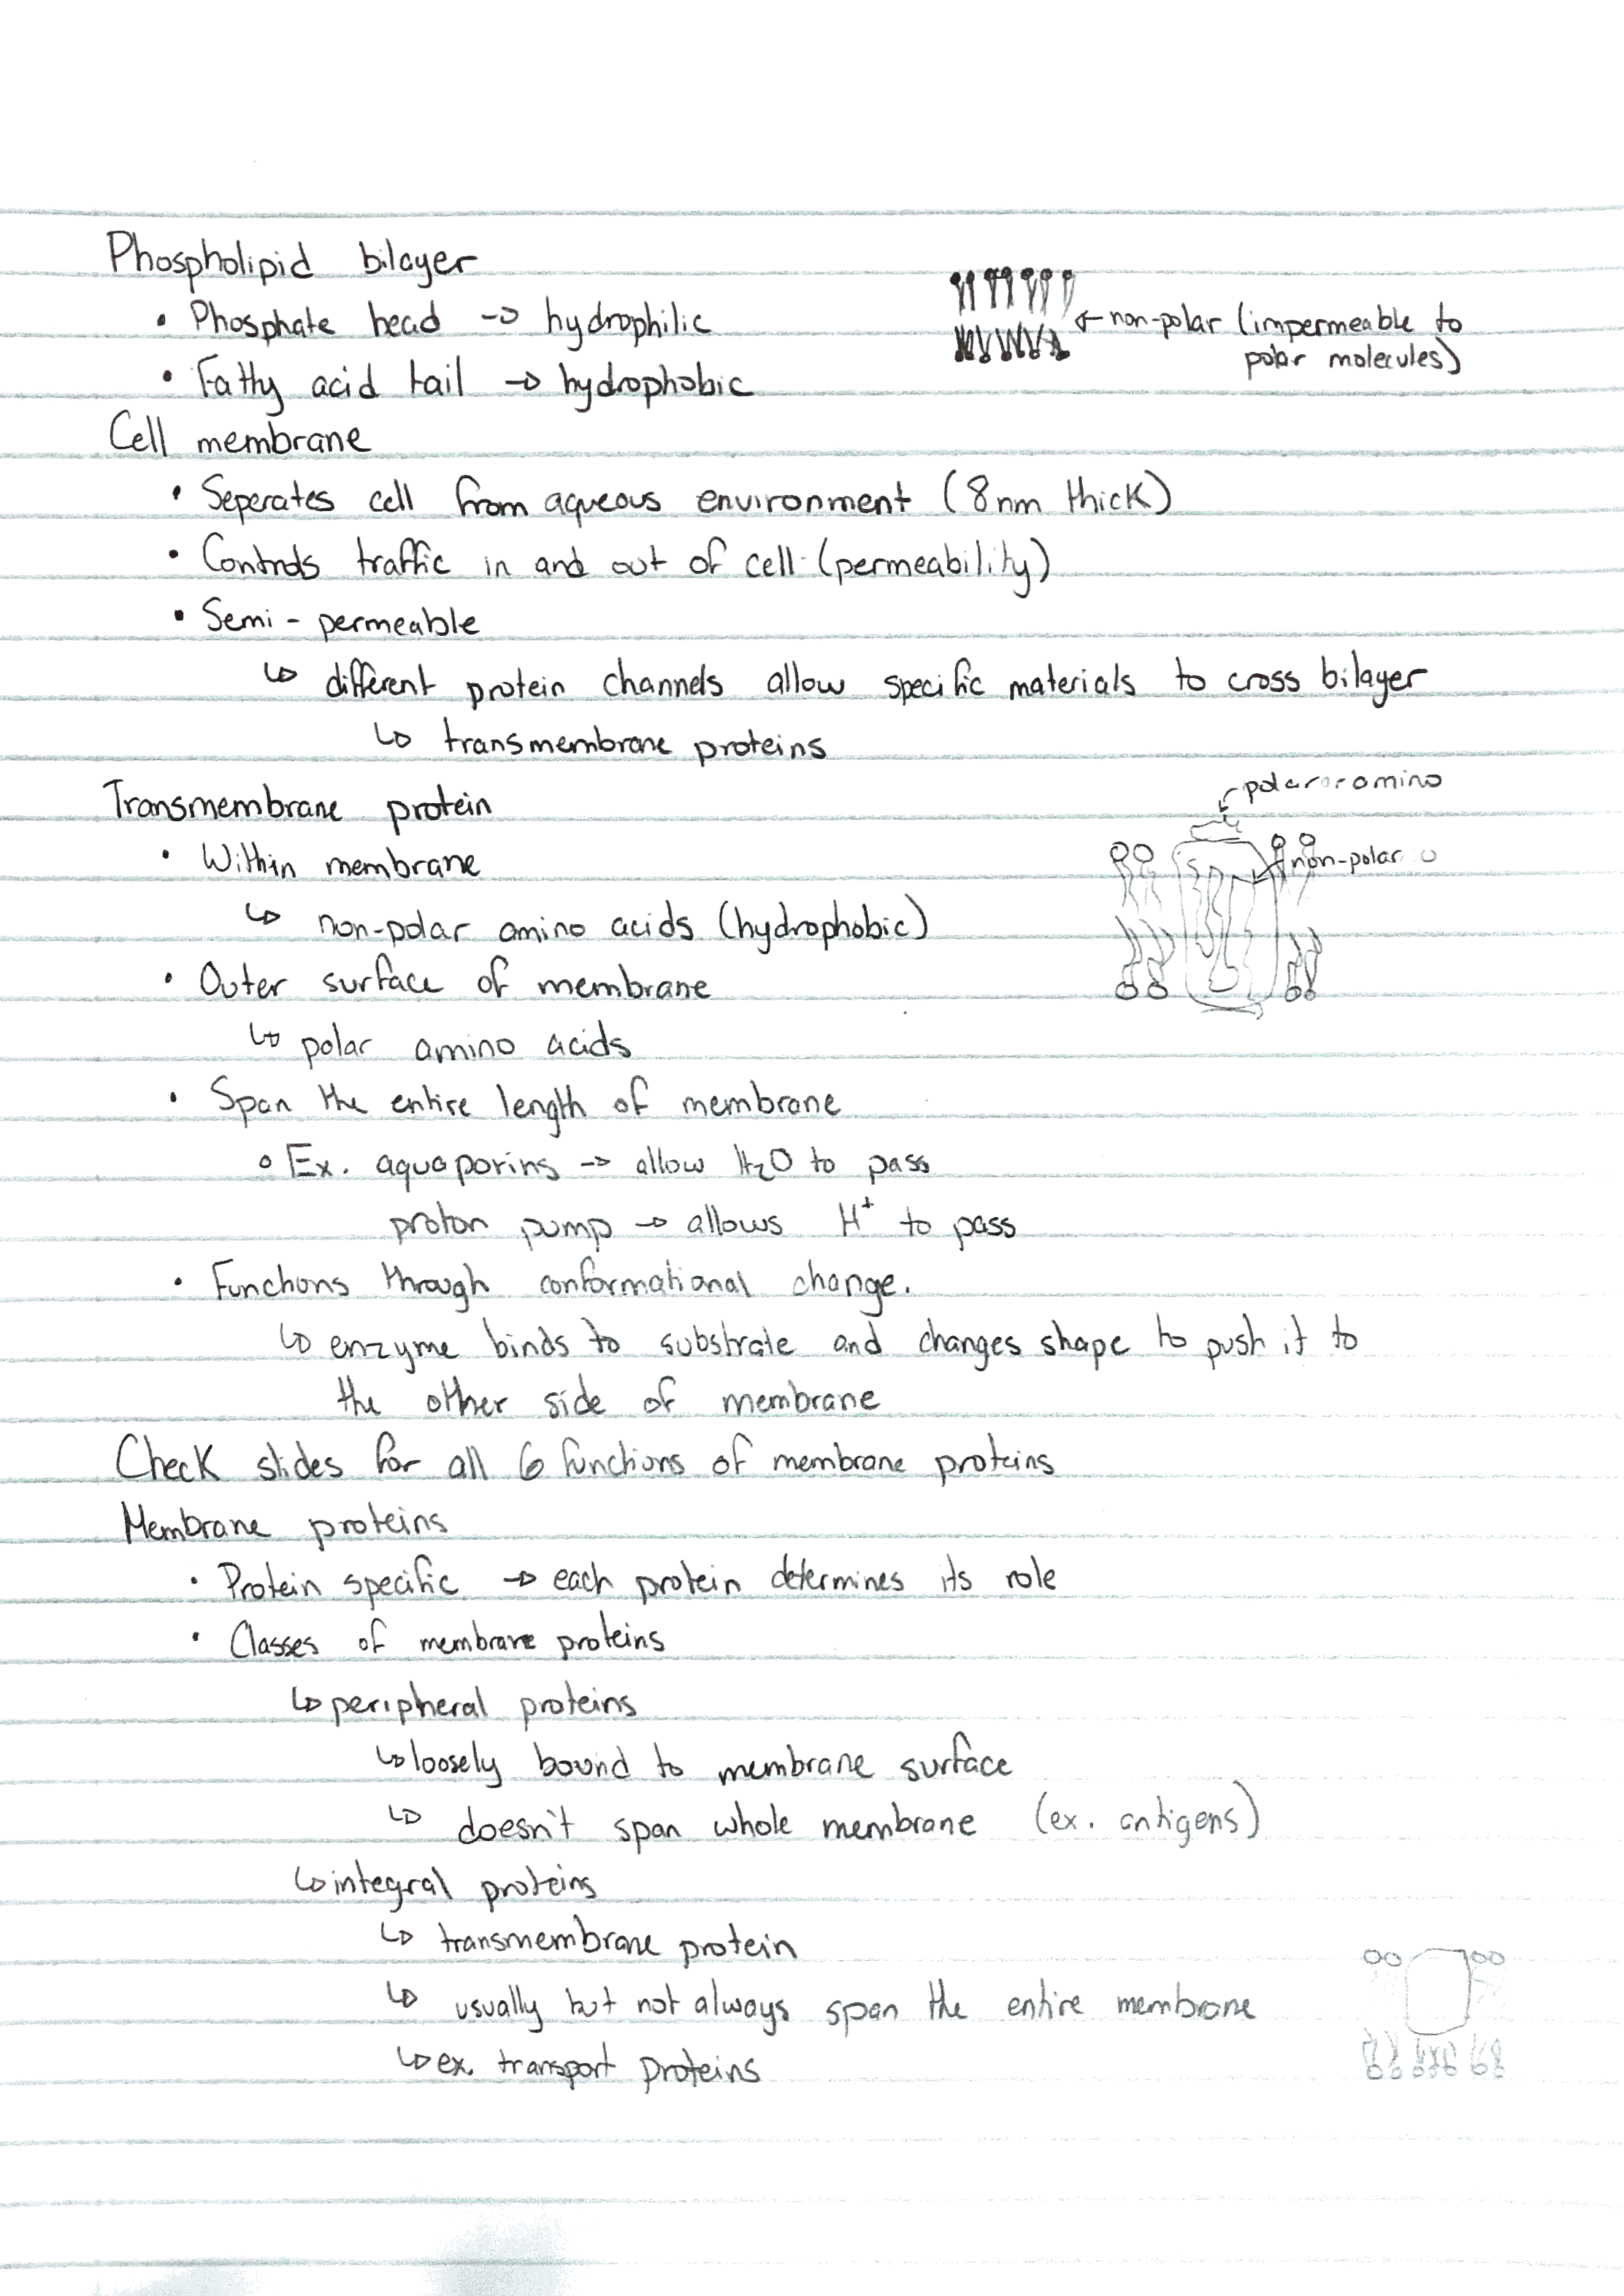 Phospholipid bilayer
• Phosphate head → hydrophilic
← non-polar (impermeable to
polar molecules)
• Fatty acid tail → hydrophobic
Cell membrane
• Seperates cell from aqueous environment (8nm thick)
• Controls traffic in and out of cell (permeability)
• Semi-permeable
↳ different protein channels allow specific materials to cross bilayer
↳ transmembrane proteins
polar amino
Transmembrane protein
• Within membrane
non-polar
↳ non-polar amino acids (hydrophobic)
• Outer surface of membrane
↳ polar amino acids
• Span the entire length of membrane
◦ Ex. aquaporins → allow H₂O to pass
proton pump → allows H⁺ to pass
• Functions through conformational change.
↳ enzyme binds to substrate and changes shape to push it to
the other side of membrane
Check slides for all 6 functions of membrane proteins
Membrane proteins
• Protein specific → each protein determines its role
• Classes of membrane proteins
↳ peripheral proteins
↳ loosely bound to membrane surface
↳ doesn't span whole membrane (ex. antigens)
↳ integral proteins
↳ transmembrane protein
↳ usually but not always span the entire membrane
↳ ex. transport proteins